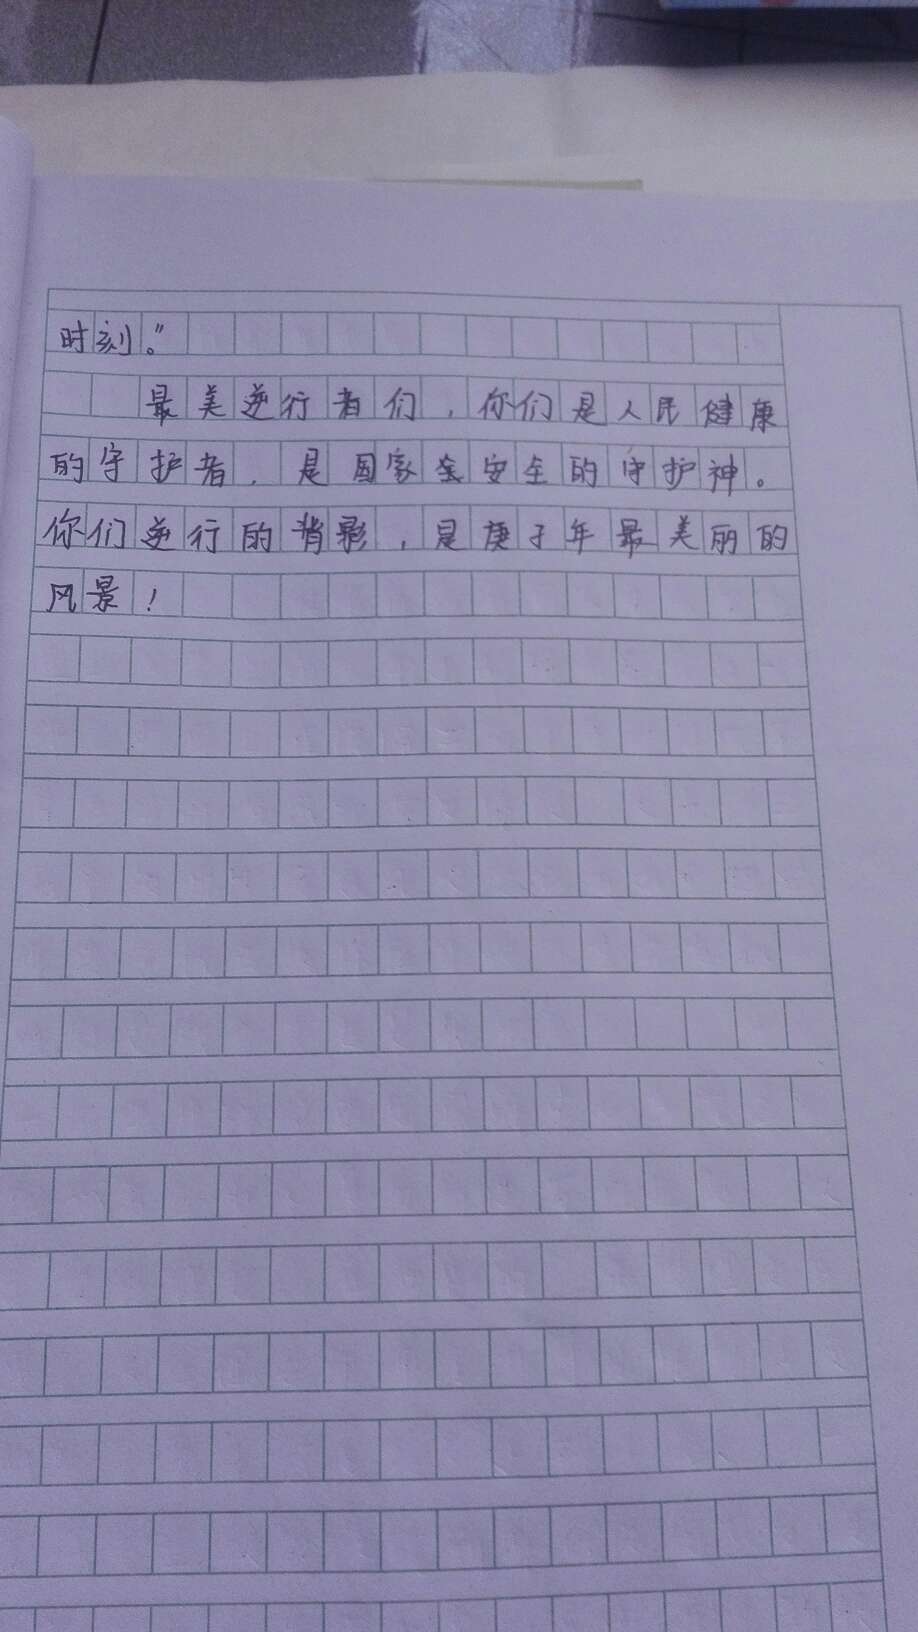 时刻。”
最美逆行者们，你们是人民健康
的守护者，是国家全安全的守护神。
你们逆行的背影，是庚子年最美丽的
风景！